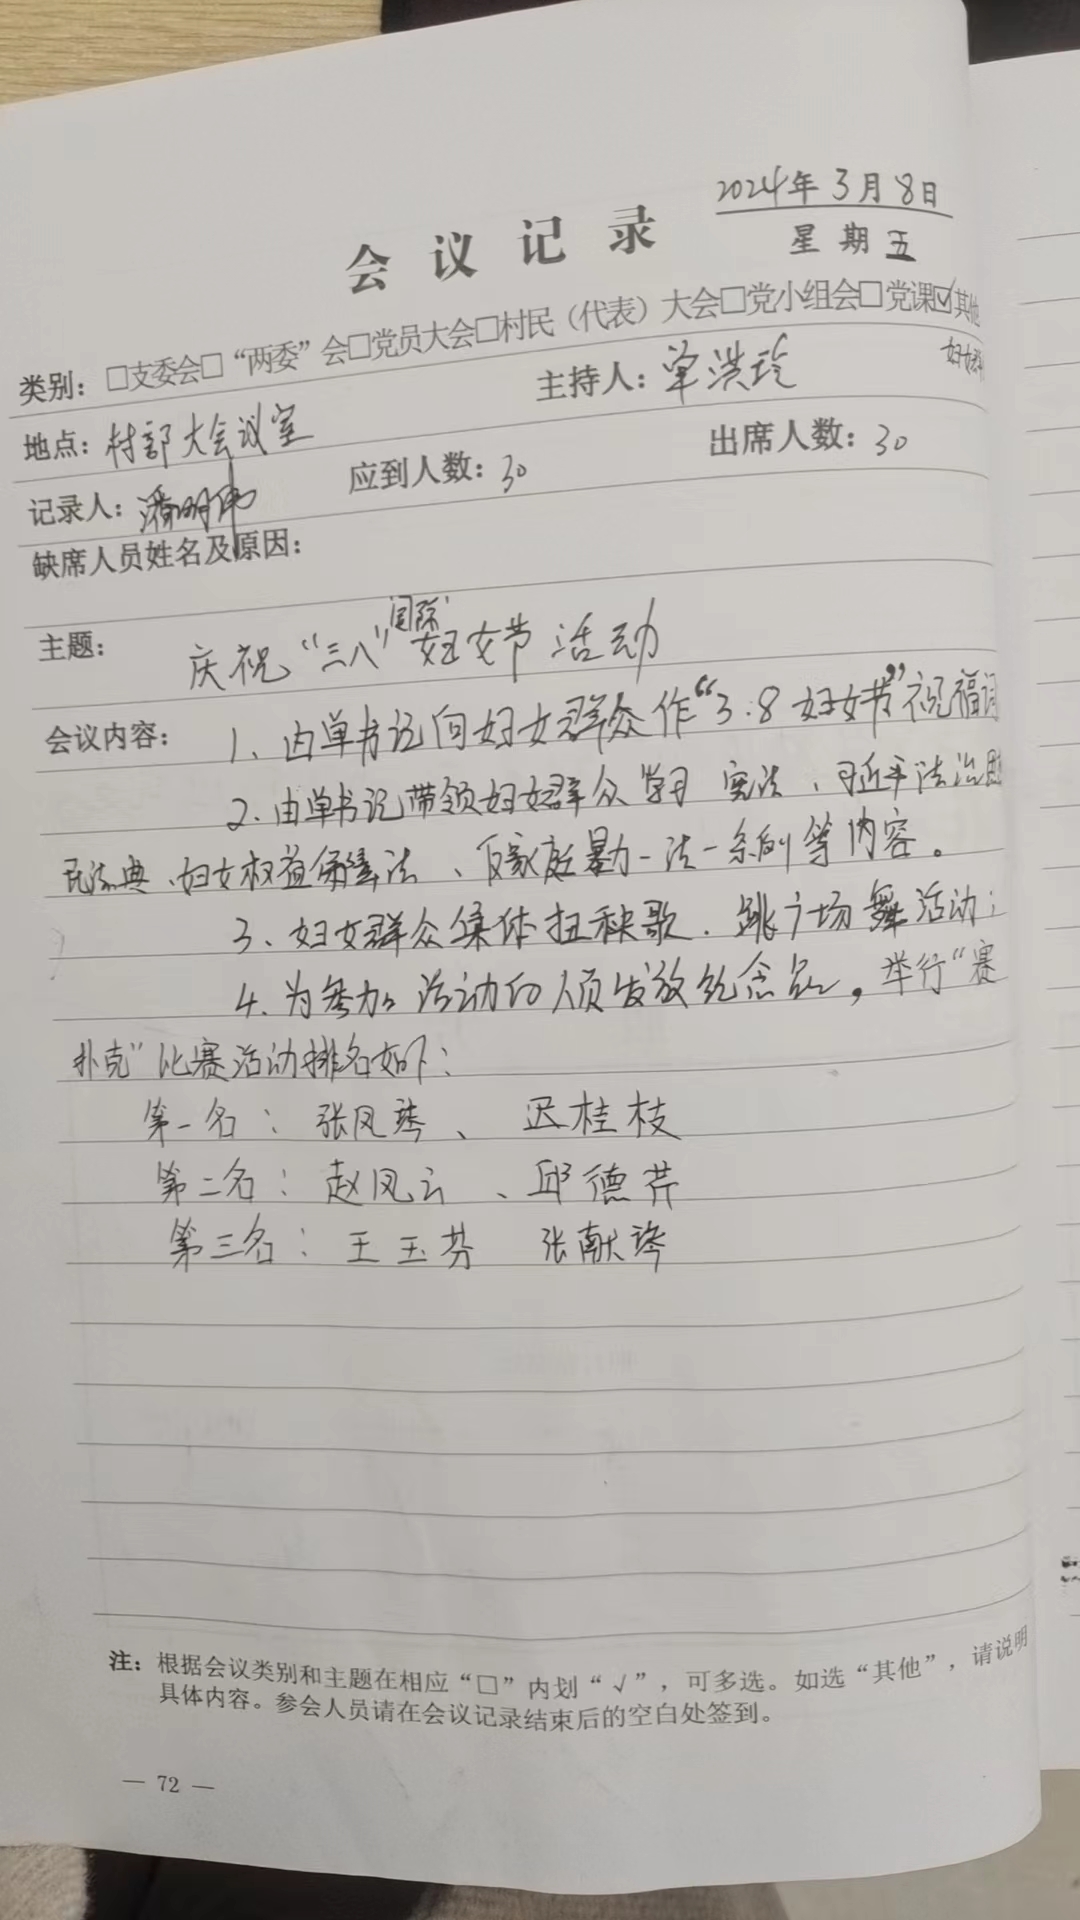 2024年3月8日
会议记录
星期五
类别：□支委会□“两委”会□党员大会□村民（代表）大会□党小组会□党课☑其他
地点：村部大会议室 主持人：单洪玲
记录人：潘明伟 应到人数：30 出席人数：30
缺席人员姓名及原因：
主题：庆祝“三八”国际妇女节活动
会议内容：1、由单书记向妇女群众作“3.8妇女节”祝福词
2、由单书记带领妇女群众学习宪法、习近平法治思
民法典、妇女权益保障法、反家庭暴力法一系列等内容。
3、妇女群众集体扭秧歌、跳广场舞活动；
4、为参加活动的人员发放纪念品，举行“赛
扑克”比赛活动排名如下：
第一名：张凤琴、迟桂枝
第二名：赵凤云、邱德芹
第三名：王玉芬 张献琴
注：根据会议类别和主题在相应“□”内划“√”，可多选。如选“其他”，请说明
具体内容。参会人员请在会议记录结束后的空白处签到。
— 72 —